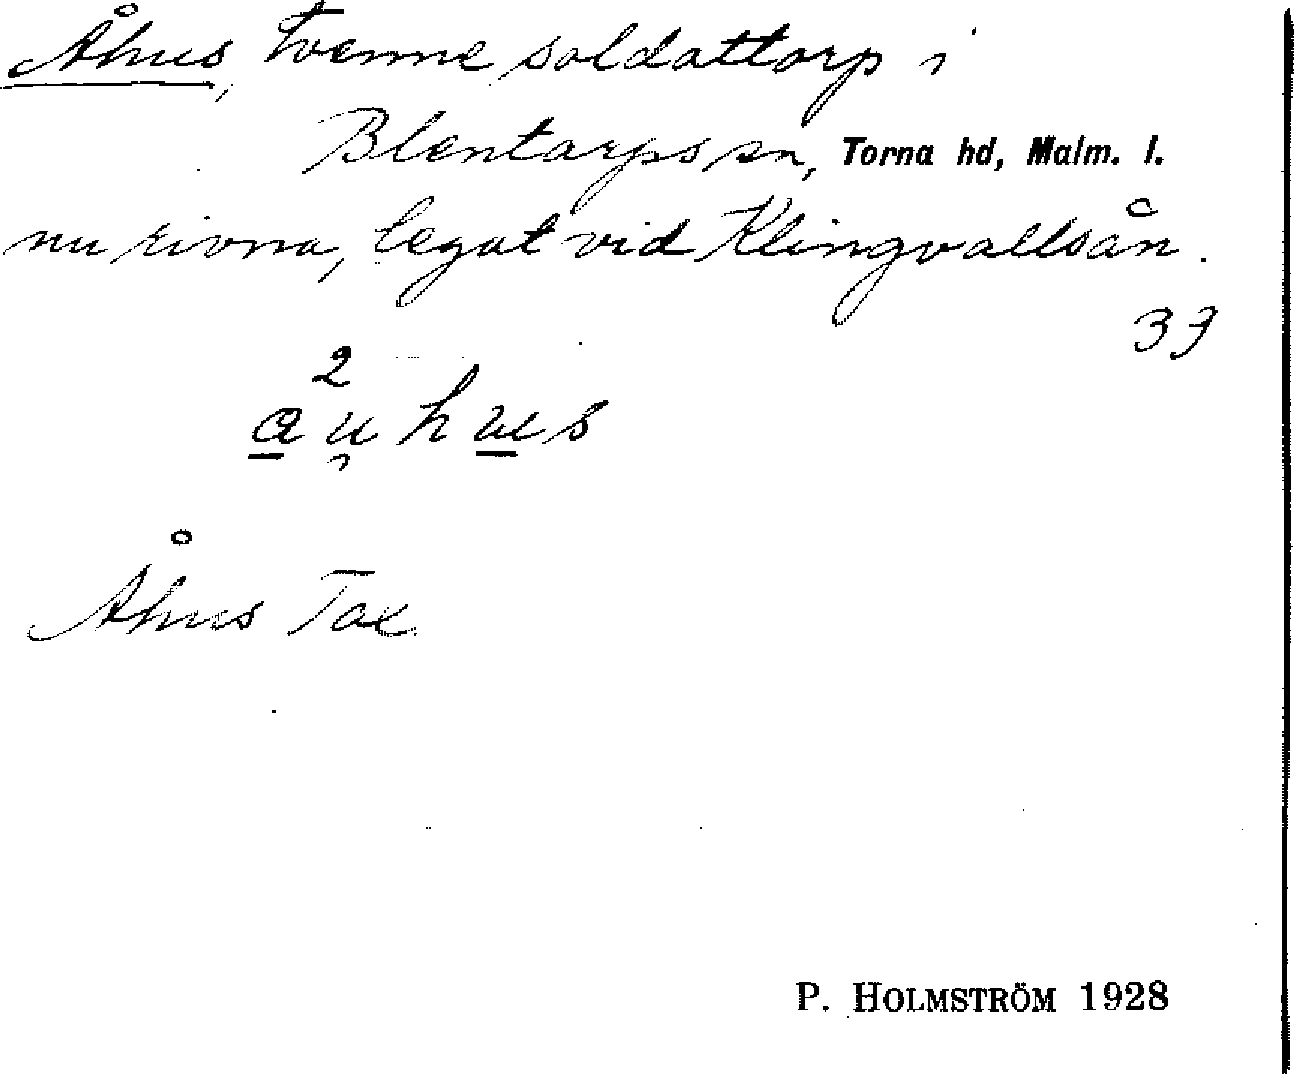 Åhus, tvenne soldattorp i
Blentarps sn, Torna hd, Malm. l.
nu rivna, legat vid Klingvallsån.
39
2
au̯hus
Åhus Tax.
P. HOLMSTRÖM 1928